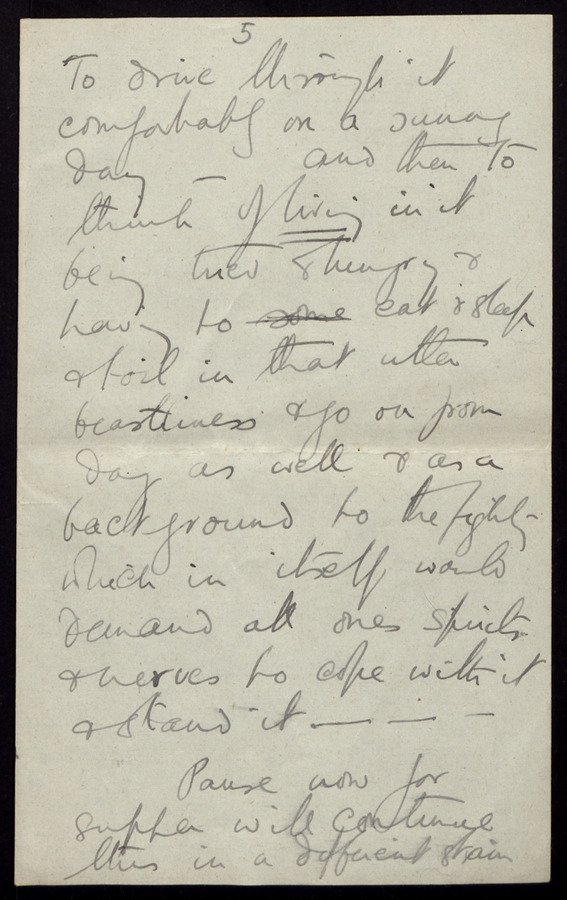 5
To drive through it
comfortably on a sunny
day – and then to
think of living in it
being tired & hungry &
having to some eat & sleep
& toil in that utter
beastliness & go on from
day as well & as a
background to the fighting
which in itself would
demand all ones spirits
& nerves to cope with it
& stand it — — –
Pause now for
supper will continue
this in a different strain